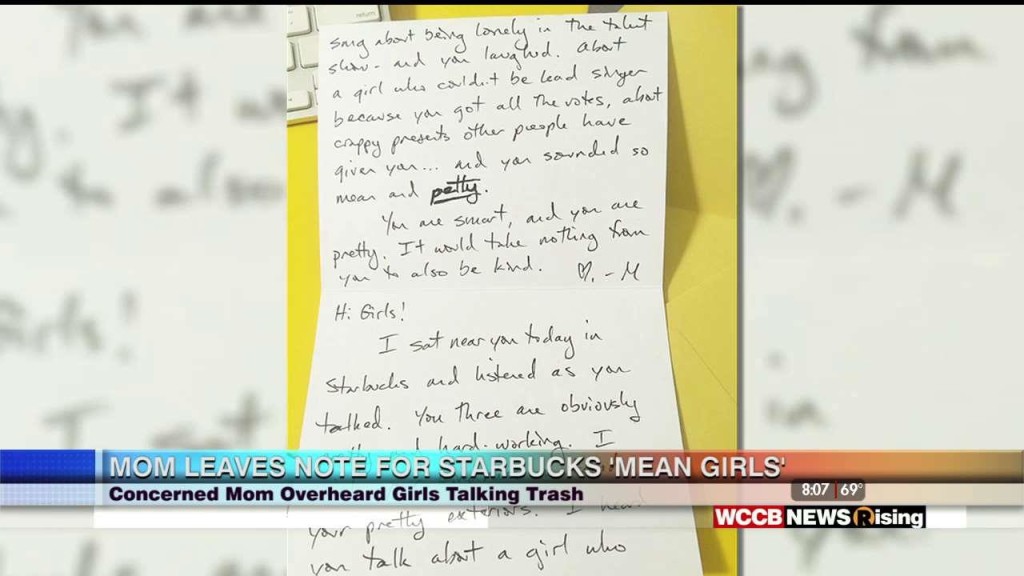 return
sang about being lonely in the talent
show - and you laughed. About
a girl who couldn't be lead singer
because you got all the votes, about
crappy presents other people have
given you... and you sounded so
mean and petty.
You are smart, and you are
pretty. It would take nothing from
you to also be kind. ♡. - M
Hi Girls!
I sat near you today in
Starbucks and listened as you
talked. You three are obviously
hard-working. I
your pretty exteriors. I
you talk about a girl who
MOM LEAVES NOTE FOR STARBUCKS 'MEAN GIRLS'
Concerned Mom Overheard Girls Talking Trash
8:07 69°
WCCB NEWS Rising